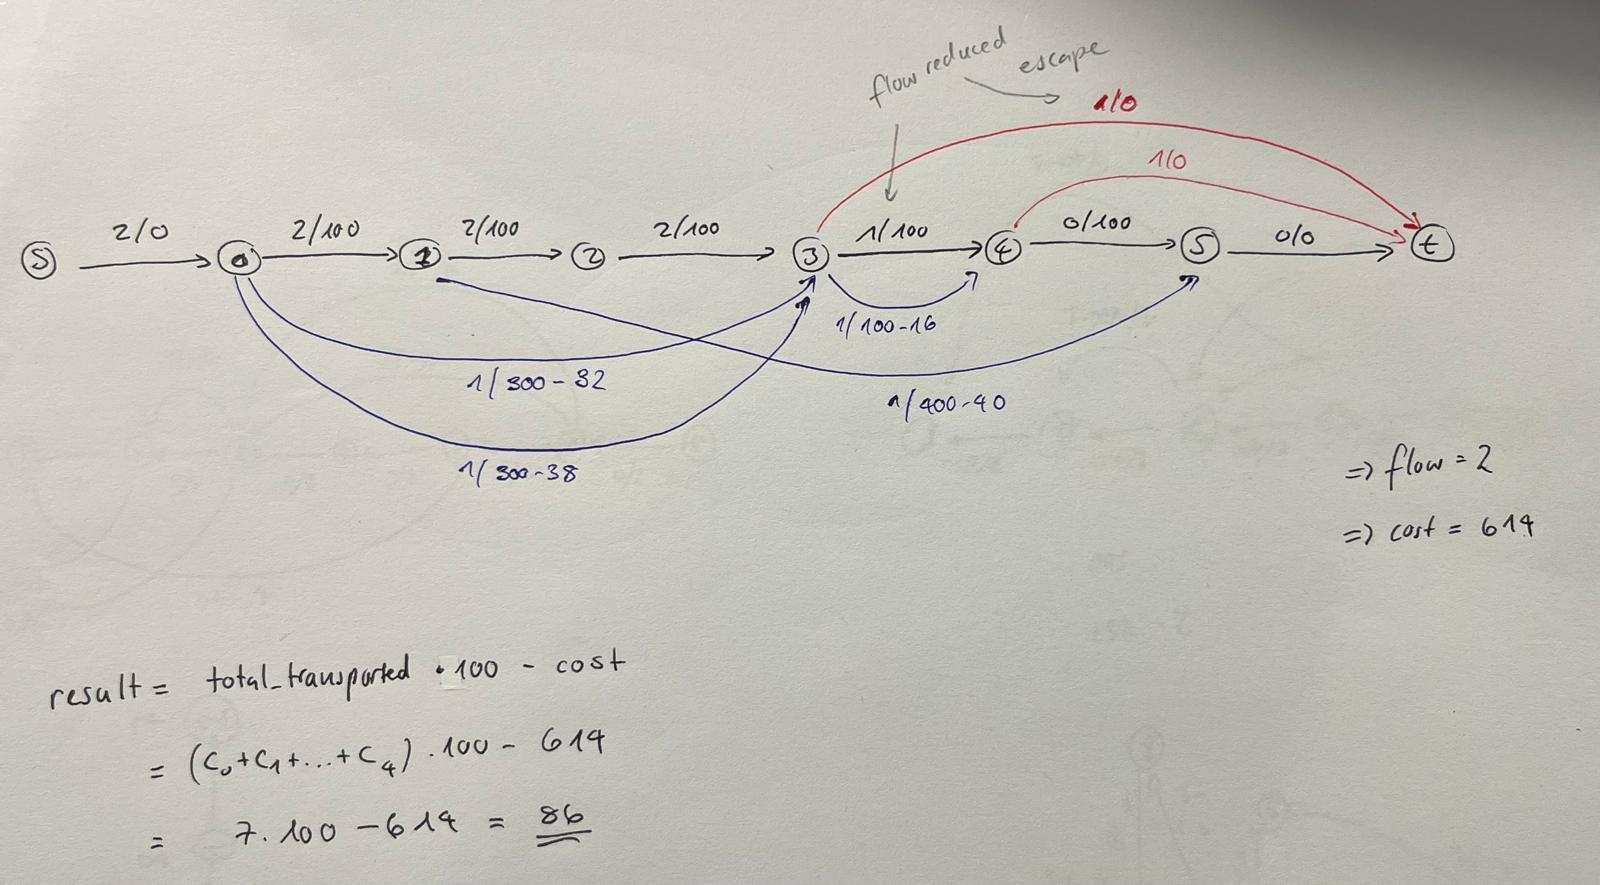 flow reduced
escape
1/0
1/0
2/0
2/100
2/100
2/100
1/100
0/100
0/0
S
0
1
2
3
4
5
t
1/100-16
1/300-32
1/400-40
1/300-38
=> flow = 2
=> cost = 614
result = total_transported · 100 - cost
= (C₀+C₁+...+C₄) · 100 - 614
= 7 · 100 - 614 = 86